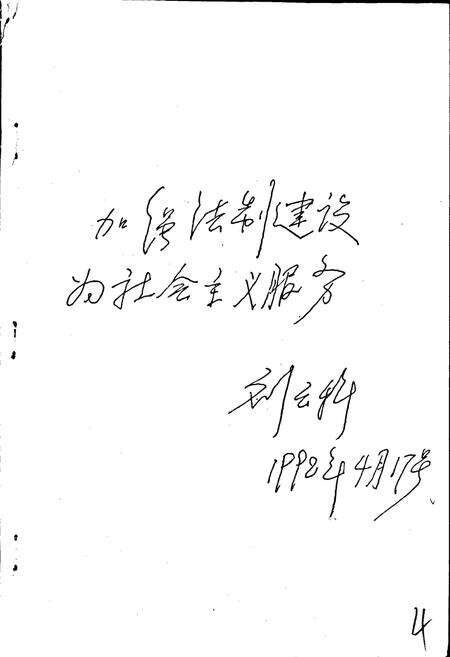 加强法制建设
为社会主义服务
刘云
1992年4月17号
4